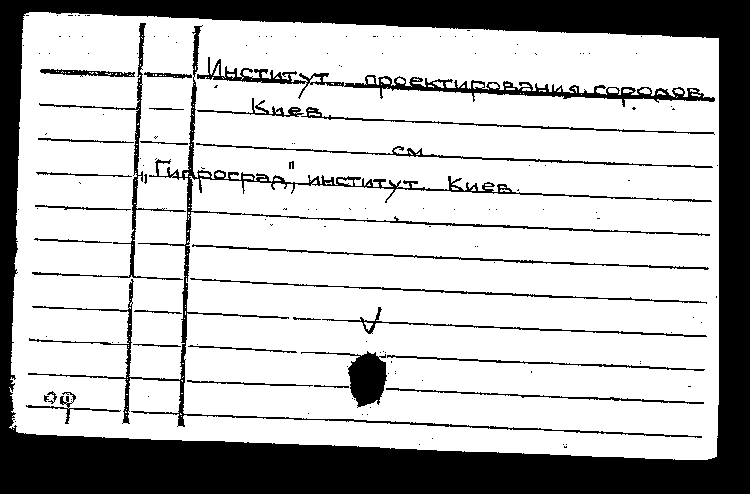 Институт проектирования городов
Киев.
см
„Гипроград", институт. Киев.